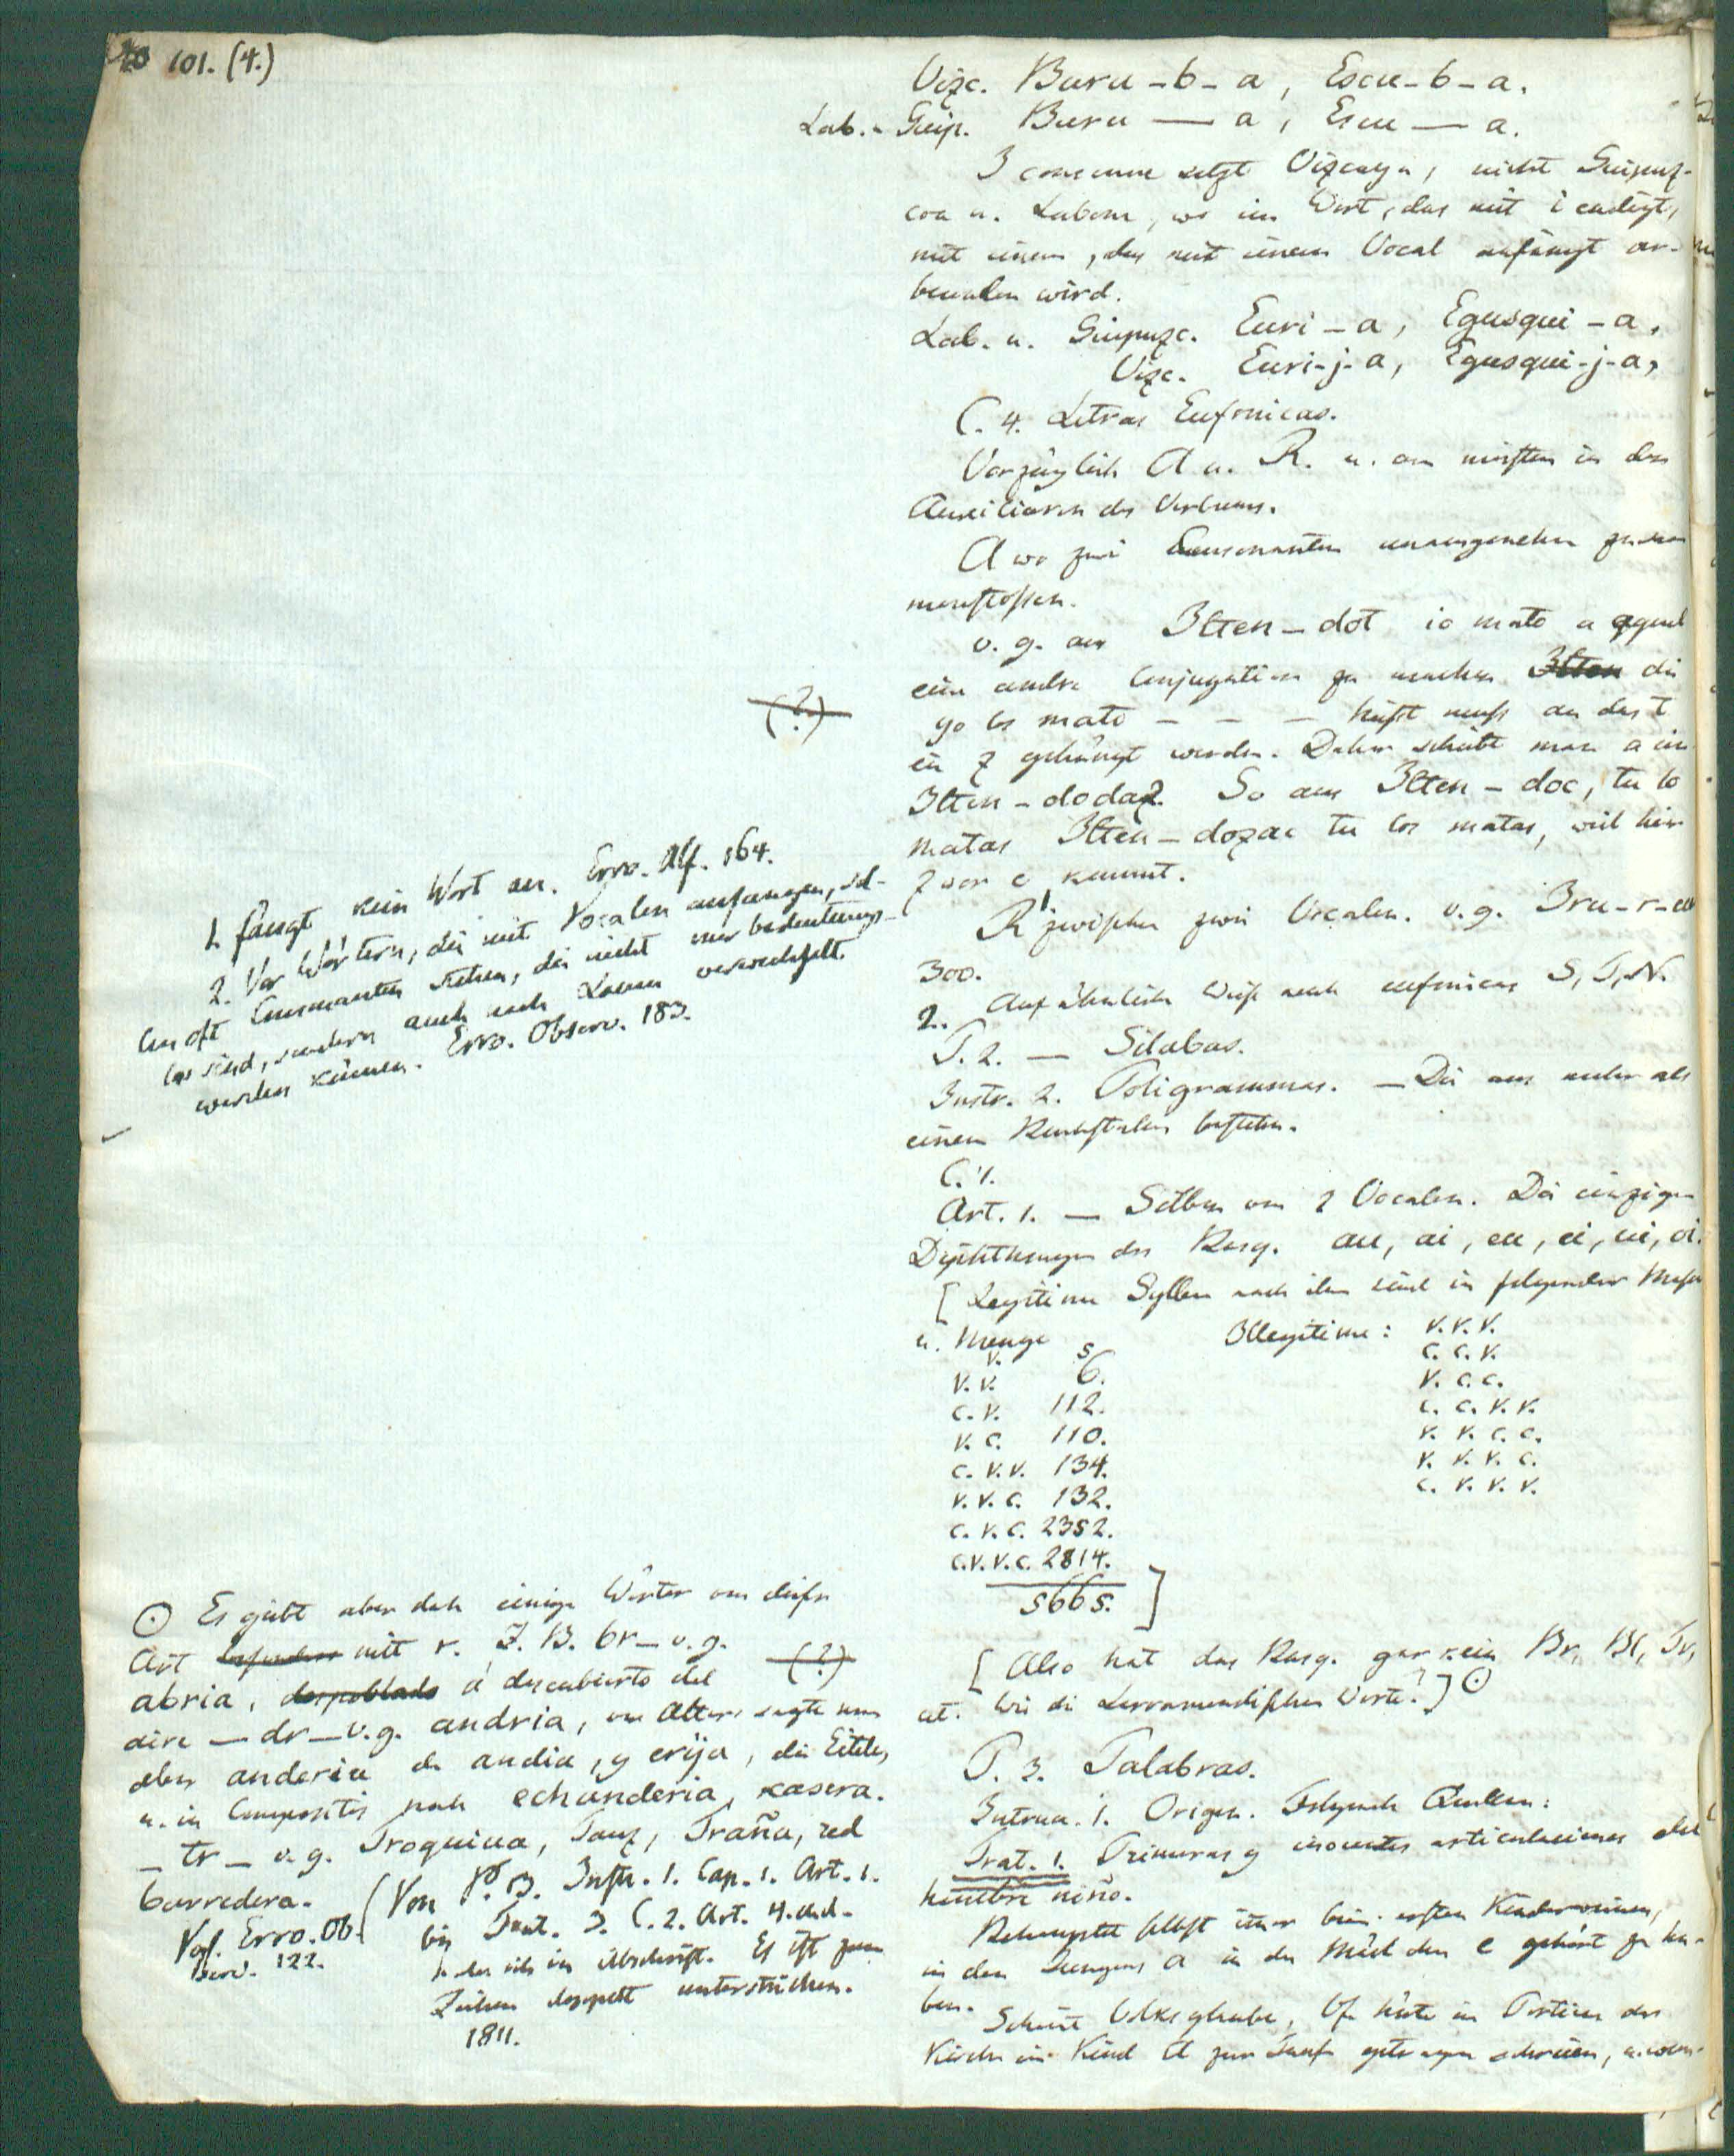 101. (4.)
Vizc. Buru-b-a, Escu-b-a.
Lab. - Guip. Buru — a, Escu — a.
I consonne setzt Vizcaya, nicht Guipuz-
coa u. Labour, wo ein Wort, das mit i endigt,
mit einem, das mit einem Vocal anfängt ver-
bunden wird.
Lab. u. Guipuzc. Euri-a, Egusqui-a,
Vizc. Euri-j-a, Egusqui-j-a,
C. 4. Letras Eufonicas.
Vorzüglich A u. R. u. am meisten in den
Auxiliaren des Verbums.
A wo zwei Consonanten unangenehm zusam
menstossen.
v. g. aus Ilten-dot io mato a aquel
eine andre Conjugation zu machen Ilten die
yo los mato - - - heisst muss an das t
ein z gehängt werden. Daher schiebt man a ein
Ilten-dodaz. So aus Ilten-doc, tu lo
matas Ilten-dozac tu los matas, weil hier
z vor c kommt.
R zwischen zwei Vocalen. v.g. Iru-r-eu
300.
2. Auf ähnliche Weise auch eufonicas S, T, N.
T. 2. — Silabas.
Instr. 2. Poligrammas. — Die aus mehr als
einem Buchstaben bestehn.
C. 1.
Art. 1. — Silben von 2 Vocalen. Die einzigen
Diphthongen der Basq. au, ai, eu, ei, ui, oi.
[ Legitime Sylben nach ihm sind in folgender Masse
u. Menge
Illegitime: v. v. v.
v. 5
c. c. v.
v. v. 6.
v. c. c.
c. v. 112.
c. c. v. v.
v. c. 110.
v. v. c. c.
c. v. v. 134.
v. v. v. c.
v. v. c. 132.
c. v. v. v.
c. v. c. 2352.
c. v. v. c. 2814.
5665. ]
[ Also hat das Basq. gar kein Br, Bl, Tr,
et. Wie die Larramendischen Worte? ] ⊙
P. 3. Palabras.
1. Origen. Folgende Quellen:
Trat. 1. Primeras y inocentes articulaciones del
hombre niño.
Behauptet selbst immer beim ersten Kinderweinen,
in den Jungens a in den Mädchen e gehört zu ha-
ben.
Scheint Volksglaube,
Kirche ein Kind zur Taufe getragen schreien,
(?)
1. fängt kein Wort an. Erro. Alf. 164.
2. Vor Wörtern, die mit Vocalen anfangen, sol-
len oft Consonanten stehen, die nicht nur bedeutungs-
los sind, sondern auch nach Launen verwechselt
werden können. Erro. Observ. 183.
⊙ Es giebt aber doch einige Wörter von dieser
Art besonders mit r. Z. B. br— v. g.
abria, despoblado ó descubierto del
aire — dr — v.g. andria, vor Alters sagte man
aber anderia de andia, y erija, die Eitele,
u. in Compositis noch echanderia, casera.
— tr — v. g. Troquiua, Tanz, Traña, red
barredera.
Vgl. Erro. Ob-
serv. 122.
(?)
Von P. 3. Instr. 1. Cap. 1. Art. 1.
bis Trat. 3. C. 2. Art. 4.
habe ich in Abschrift. Es ist zum
Zeichen doppelt unterstrichen.
1811.